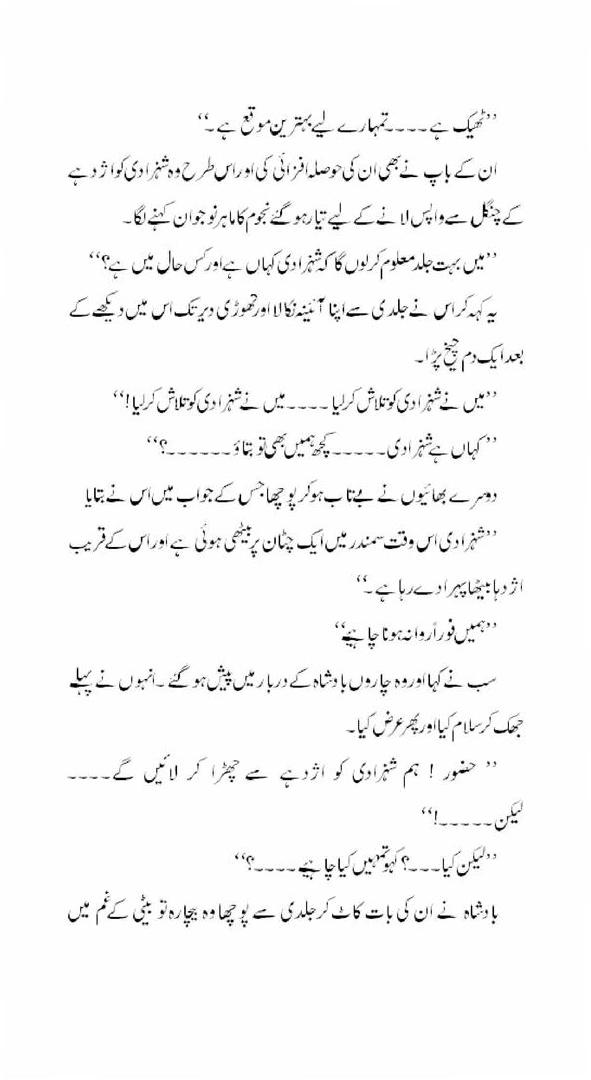 ’’ٹھیک ہے ۔۔۔۔تمہارے لیے بہترین موقع ہے۔‘‘
ان کے باپ نے بھی ان کی حوصلہ افزائی کی اور اس طرح وہ شہزادی کو اژدہے
کے چنگل سے واپس لانے کے لیے تیار ہو گئے نجوم کا ماہر نوجوان کہنے لگا۔
’’میں بہت جلد معلوم کرلوں گا کہ شہزادی کہاں ہے اور کس حال میں ہے؟‘‘
یہ کہہ کر اس نے جلدی سے اپنا آئینہ نکالا اور تھوڑی دیر تک اس میں دیکھنے کے
بعد ایک دم چیخ پڑا۔
’’میں نے شہزادی کو تلاش کرلیا ۔۔۔۔میں نے شہزادی کو تلاش کرلیا!‘‘
’’کہاں ہے شہزادی۔۔۔۔۔کچھ ہمیں بھی تو بتاؤ۔۔۔۔۔۔؟‘‘
دوسرے بھائیوں نے بے تاب ہو کر پوچھا جس کے جواب میں اس نے بتایا
’’شہزادی اس وقت سمندر میں ایک چٹان پر بیٹھی ہوئی ہے اور اس کے قریب
اژدہا بیٹھا پہرا دے رہا ہے۔‘‘
’’ہمیں فوراً روانہ ہونا چاہیے‘‘
سب نے کہا اور وہ چاروں بادشاہ کے دربار میں پیش ہو گئے۔انہوں نے پہلے
جھک کر سلام کیا اور پھر عرض کیا۔
’’ حضور ! ہم شہزادی کو اژدہے سے چھڑا کر لائیں گے۔۔۔۔
لیکن۔۔۔۔۔!‘‘
’’لیکن کیا۔۔۔؟ کہو تمہیں کیا چاہیے۔۔۔۔؟‘‘
بادشاہ نے ان کی بات کاٹ کر جلدی سے پوچھا وہ بیچارہ تو بیٹی کے غم میں